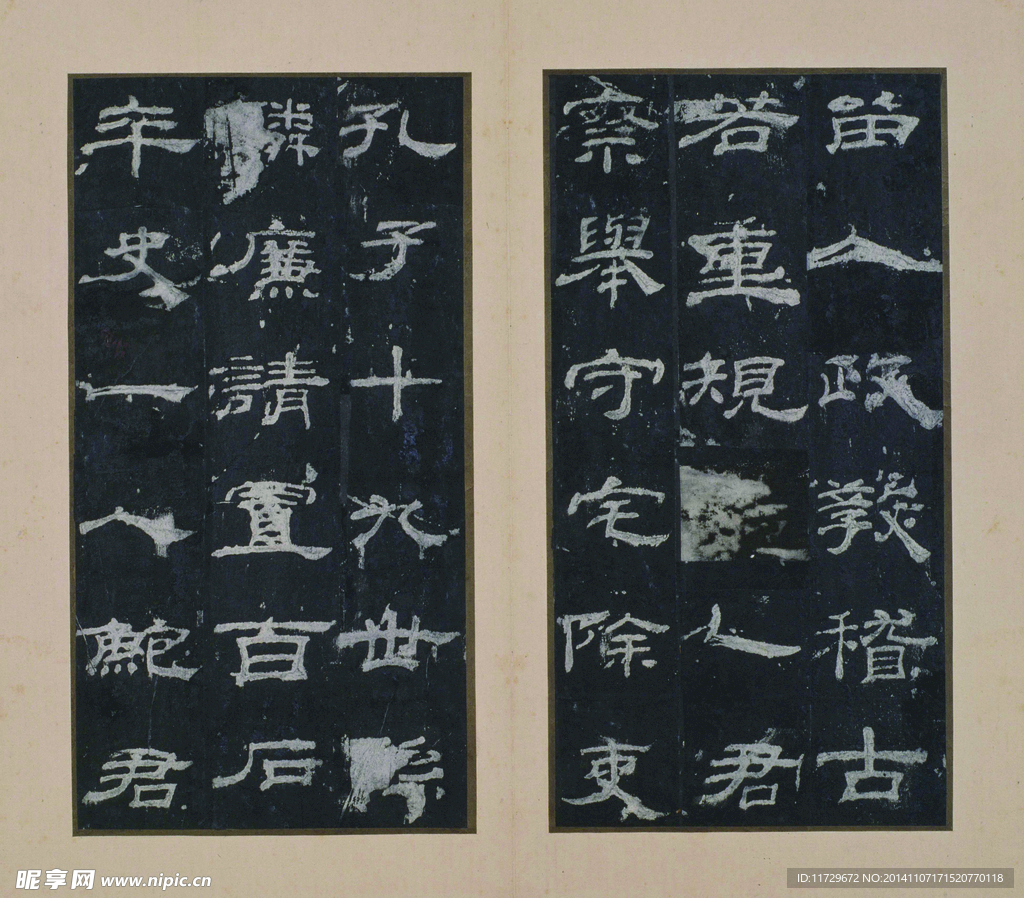 留人政教稽古
若重規乙君
察舉守宅除吏
孔子十九世孫
麟廉請置百石
卒史一人鮑君
昵享网 www.nipic.cn
ID:11729672 NO:20141107171520770118